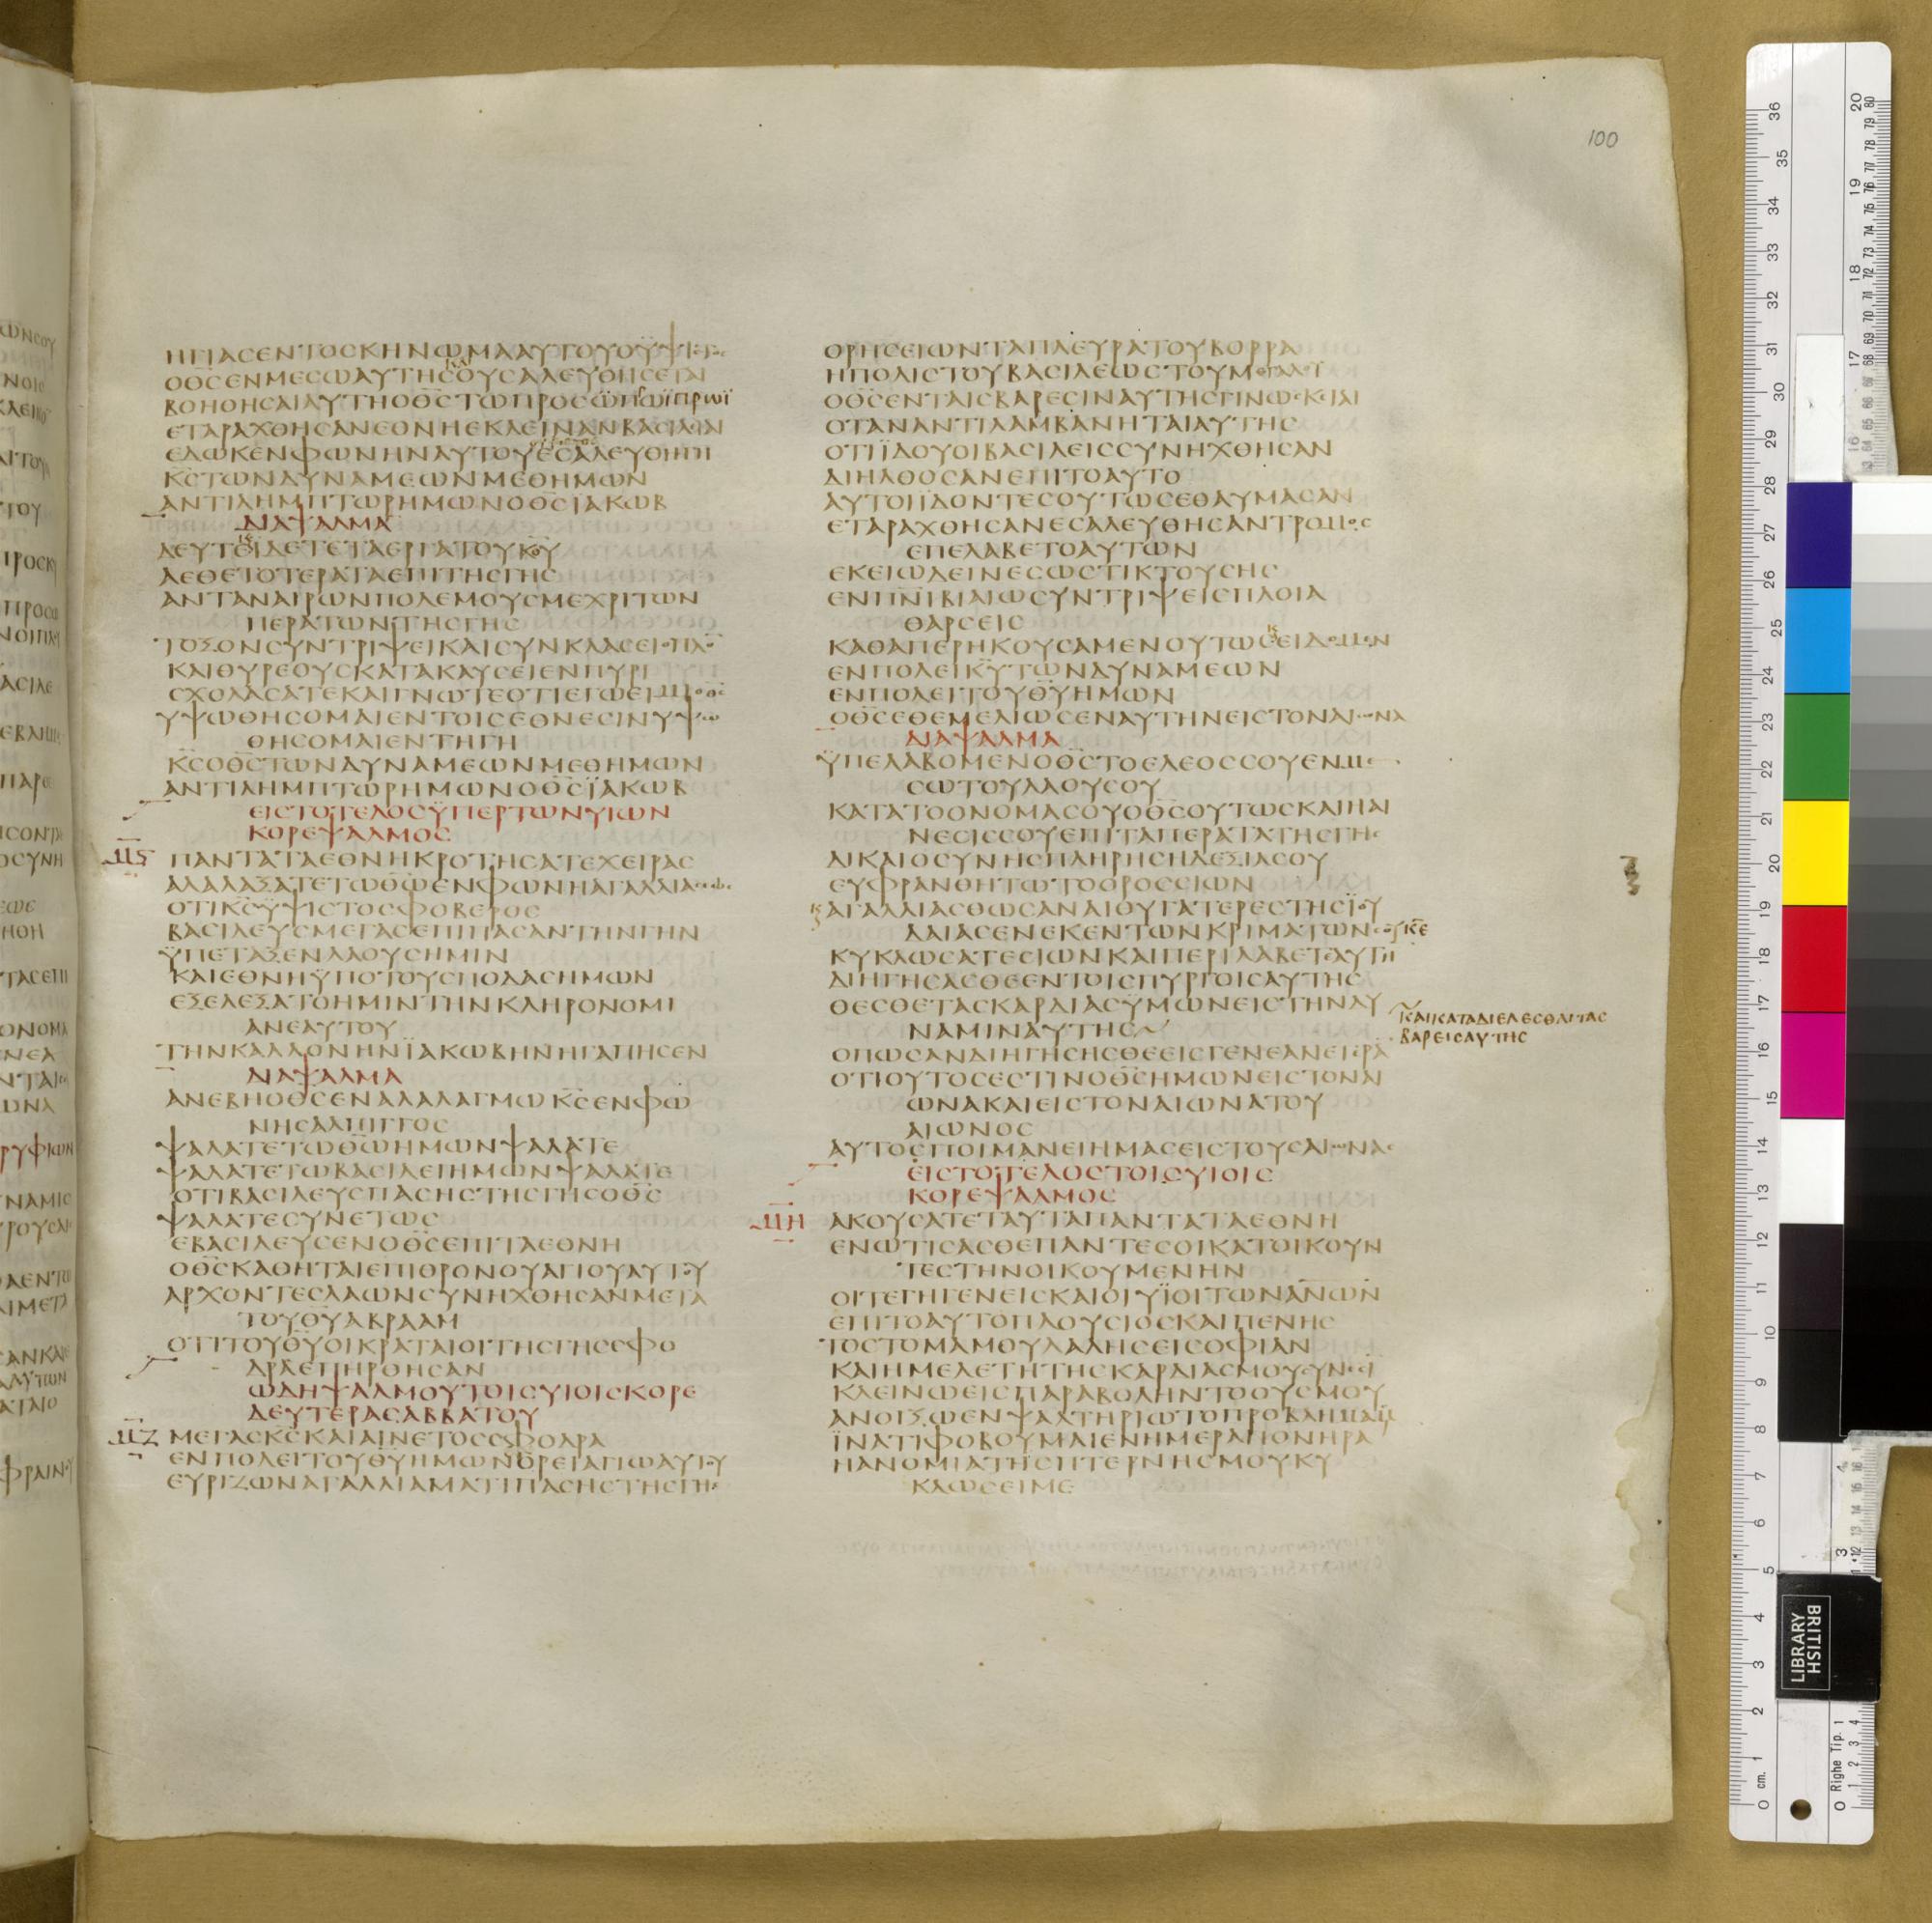 100
ΗΓΙΑCΕΝΤΟCΚΗΝΩΜΑΑΥΤΟΥΟΥΨΙCΤΟC
ΟΘCΕΝΜΕCΩΑΥΤΗCΟΥCΑΛΕΥΘΗCΕΤΑΙ
ΒΟΗΘΗCΑΙΑΥΤΗΟΘCΤΩΠΡΟC
ΕΤΑΡΑΧΘΗCΑΝΕΘΝΗΕΚΛΕΙΝΑΝΒΑCΙΛΙΑΙ
ΕΔΩΚΕΝΦΩΝΗΝΑΥΤΟΥΕCΑΛΕΥΘΗΓΗ
ΚCΤΩΝΔΥΝΑΜΕΩΝΜΕΘΗΜΩΝ
ΑΝΤΙΛΗΜΠΤΩΡΗΜΩΝΟΘCΪΑΚΩΒ
ΔΙΑΨΑΛΜΑ
ΔΕΥΤΕΙΔΕΤΕΤΑΕΡΓΑΤΟΥΚΥ
ΑΕΘΕΤΟΤΕΡΑΤΑΕΠΙΤΗCΓΗC
ΑΝΤΑΝΑΙΡΩΝΠΟΛΕΜΟΥCΜΕΧΡΙΤΩΝ
ΠΕΡΑΤΩΝΤΗCΓΗC
ΤΟΞΟΝCΥΝΤΡΙΨΕΙΚΑΙCΥΝΚΛΑCΕΙΟΠΛΟ
ΚΑΙΘΥΡΕΟΥCΚΑΤΑΚΑΥCΕΙΕΝΠΥΡΙ
CΧΟΛΑCΑΤΕΚΑΙΓΝΩΤΕΟΤΙΕΓΩΕΙΜΙΟΘC
ΥΨΩΘΗCΟΜΑΙΕΝΤΟΙCΕΘΝΕCΙΝΥΨΩ
ΘΗCΟΜΑΙΕΝΤΗΓΗ
ΚCΟΘCΤΩΝΔΥΝΑΜΕΩΝΜΕΘΗΜΩΝ
ΑΝΤΙΛΗΜΠΤΩΡΗΜΩΝΟΘCΪΑΚΩΒ
ΕΙCΤΟΤΕΛΟCΫΠΕΡΤΩΝΥΙΩΝ
ΚΟΡΕΨΑΛΜΟC
ΜϚ ΠΑΝΤΑΤΑΕΘΝΗΚΡΟΤΗCΑΤΕΧΕΙΡΑC
ΑΛΑΛΑΞΑΤΕΤΩΘΩΕΝΦΩΝΗΑΓΑΛΛΙΑCΕΩC
ΟΤΙΚCΫΨΙCΤΟCΦΟΒΕΡΟC
ΒΑCΙΛΕΥCΜΕΓΑCΕΠΙΠΑCΑΝΤΗΝΓΗΝ
ΫΠΕΤΑΞΕΝΛΑΟΥCΗΜΙΝ
ΚΑΙΕΘΝΗΫΠΟΤΟΥCΠΟΔΑCΗΜΩΝ
ΕΞΕΛΕΞΑΤΟΗΜΙΝΤΗΝΚΛΗΡΟΝΟΜΙ
ΑΝΕΑΥΤΟΥ
ΤΗΝΚΑΛΛΟΝΗΝΪΑΚΩΒΗΝΗΓΑΠΗCΕΝ
ΔΙΑΨΑΛΜΑ
ΑΝΕΒΗΟΘCΕΝΑΛΑΛΑΓΜΩΚCΕΝΦΩ
ΝΗCΑΛΠΙΓΓΟC
ΨΑΛΑΤΕΤΩΘΩΗΜΩΝΨΑΛΑΤΕ
ΨΑΛΑΤΕΤΩΒΑCΙΛΕΙΗΜΩΝΨΑΛΑΤΕ
ΟΤΙΒΑCΙΛΕΥCΠΑCΗCΤΗCΓΗCΟΘC
ΨΑΛΑΤΕCΥΝΕΤΩC
ΕΒΑCΙΛΕΥCΕΝΟΘCΕΠΙΤΑΕΘΝΗ
ΟΘCΚΑΘΗΤΑΙΕΠΙΘΡΩΝΟΥΑΓΙΟΥΑΥΤΟΥ
ΑΡΧΟΝΤΕCΛΑΩΝCΥΝΗΧΘΗCΑΝΜΕΤΑ
ΤΟΥΘΥΑΒΡΑΑΜ
ΟΤΙΤΟΥΘΥΟΙΚΡΑΤΑΙΟΙΤΗCΓΗCCΦΟ
ΔΡΑΕΠΗΡΘΗCΑΝ
ΩΔΗΨΑΛΜΟΥΤΟΙCΥΙΟΙCΚΟΡΕ
ΔΕΥΤΕΡΑCΑΒΒΑΤΟΥ
ΜΖ ΜΕΓΑCΚCΚΑΙΑΙΝΕΤΟCCΦΟΔΡΑ
ΕΝΠΟΛΕΙΤΟΥΘΥΗΜΩΝΟΡΕΙΑΓΙΩΑΥΤΟΥ
ΕΥΡΙΖΩΝΑΓΑΛΛΙΑΜΑΤΙΠΑCΗCΤΗCΓΗC
ΟΡΗCΕΙΩΝΤΑΠΛΕΥΡΑΤΟΥΒΟΡΡΑ
ΗΠΟΛΙCΤΟΥΒΑCΙΛΕΩCΤΟΥΜΕΓΑΛΟΥ
ΟΘCΕΝΤΑΙCΒΑΡΕCΙΝΑΥΤΗCΓΙΝΩCΚΕΤΑΙ
ΟΤΑΝΑΝΤΙΛΑΜΒΑΝΗΤΑΙΑΥΤΗC
ΟΤΙΪΔΟΥΟΙΒΑCΙΛΕΙCCΥΝΗΧΘΗCΑΝ
ΔΙΗΛΘΟCΑΝΕΠΙΤΟΑΥΤΟ
ΑΥΤΟΙΪΔΟΝΤΕCΟΥΤΩCΕΘΑΥΜΑCΑΝ
ΕΤΑΡΑΧΘΗCΑΝΕCΑΛΕΥΘΗCΑΝΤΡΟΜΟC
ΕΠΕΛΑΒΕΤΟΑΥΤΩΝ
ΕΚΕΙΩΔΕΙΝΕCΩCΤΙΚΤΟΥCΗC
ΕΝΠΝΙΒΙΑΙΩCΥΝΤΡΙΨΕΙCΠΛΟΙΑ
ΘΑΡCΕΙC
ΚΑΘΑΠΕΡΗΚΟΥCΑΜΕΝΟΥΤΩCΕΙΔΟΜΕΝ
ΕΝΠΟΛΕΙΚΥΤΩΝΔΥΝΑΜΕΩΝ
ΕΝΠΟΛΕΙΤΟΥΘΥΗΜΩΝ
ΟΘCΕΘΕΜΕΛΙΩCΕΝΑΥΤΗΝΕΙCΤΟΝΑΙΩΝΑ
ΔΙΑΨΑΛΜΑ
ΫΠΕΛΑΒΟΜΕΝΟΘCΤΟΕΛΕΟCCΟΥΕΝΜΕ
CΩΤΟΥΛΑΟΥCΟΥ
ΚΑΤΑΤΟΟΝΟΜΑCΟΥΟΘCΟΥΤΩCΚΑΙΗΑΙ
ΝΕCΙCCΟΥΕΠΙΤΑΠΕΡΑΤΑΤΗCΓΗC
ΔΙΚΑΙΟCΥΝΗCΠΛΗΡΗCΗΔΕΞΙΑCΟΥ
ΕΥΦΡΑΝΘΗΤΩΤΟΟΡΟCCΙΩΝ
ΑΓΑΛΛΙΑCΘΩCΑΝΑΙΘΥΓΑΤΕΡΕCΤΗCΪΟΥ
ΔΑΙΑCΕΝΕΚΕΝΤΩΝΚΡΙΜΑΤΩΝCΟΥΚΕ
ΚΥΚΛΩCΑΤΕCΙΩΝΚΑΙΠΕΡΙΛΑΒΕΤΕΑΥΤΗ
ΔΙΗΓΗCΑCΘΕΕΝΤΟΙCΠΥΡΓΟΙCΑΥΤΗC
ΘΕCΘΕΤΑCΚΑΡΔΙΑCΫΜΩΝΕΙCΤΗΝΔΥ
ΝΑΜΙΝΑΥΤΗC
ΚΑΙΚΑΤΑΔΙΕΛΕCΘΑΙΤΑC
ΒΑΡΕΙCΑΥΤΗC
ΟΠΩCΑΝΔΙΗΓΗCΗCΘΕΕΙCΓΕΝΕΑΝΕΤΕΡΑ
ΟΤΙΟΥΤΟCΕCΤΙΝΟΘCΗΜΩΝΕΙCΤΟΝΑΙ
ΩΝΑΚΑΙΕΙCΤΟΝΑΙΩΝΑΤΟΥ
ΑΙΩΝΟC
ΑΥΤΟCΠΟΙΜΑΝΕΙΗΜΑCΕΙCΤΟΥCΑΙΩΝΑC
ΕΙCΤΟΤΕΛΟCΤΟΙCΥΙΟΙC
ΚΟΡΕΨΑΛΜΟC
ΜΗ ΑΚΟΥCΑΤΕΤΑΥΤΑΠΑΝΤΑΤΑΕΘΝΗ
ΕΝΩΤΙCΑCΘΕΠΑΝΤΕCΟΙΚΑΤΟΙΚΟΥΝ
ΤΕCΤΗΝΟΙΚΟΥΜΕΝΗΝ
ΟΙΤΕΓΗΓΕΝΕΙCΚΑΙΟΙΫΙΟΙΤΩΝΑΝΩΝ
ΕΠΙΤΟΑΥΤΟΠΛΟΥCΙΟCΚΑΙΠΕΝΗC
ΤΟCΤΟΜΑΜΟΥΛΑΛΗCΕΙCΟΦΙΑΝ
ΚΑΙΗΜΕΛΕΤΗΤΗCΚΑΡΔΙΑCΜΟΥCΥΝΕCΙ
ΚΛΕΙΝΩΕΙCΠΑΡΑΒΟΛΗΝΤΟΟΥCΜΟΥ
ΑΝΟΙΞΩΕΝΨΑΛΤΗΡΙΩΤΟΠΡΟΒΛΗΜΑΜΟΥ
ΪΝΑΤΙΦΟΒΟΥΜΑΙΕΝΗΜΕΡΑΠΟΝΗΡΑ
ΗΑΝΟΜΙΑΤΗCΠΤΕΡΝΗCΜΟΥΚΥ
ΚΛΩCΕΙΜΕ
BRITISH
LIBRARY